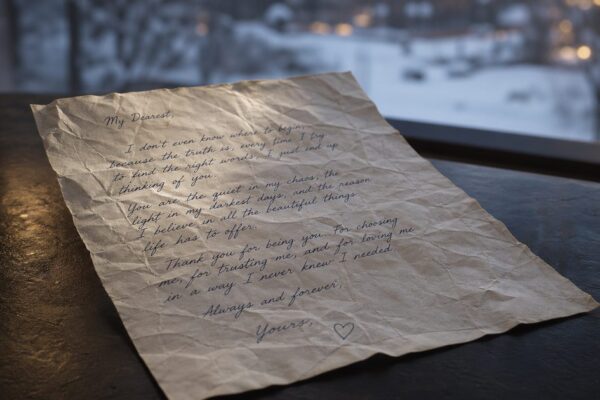 My Dearest,
I don't even know where to begin,
because the truth is, every time I try
to find the right words, I just end up
thinking of you.
You are the quiet in my chaos, the
light in my darkest days, and the reason
I believe in all the beautiful things
life has to offer.
Thank you for being you. For choosing
me, for trusting me, and for loving me
in a way I never knew I needed.
Always and forever,
Yours,